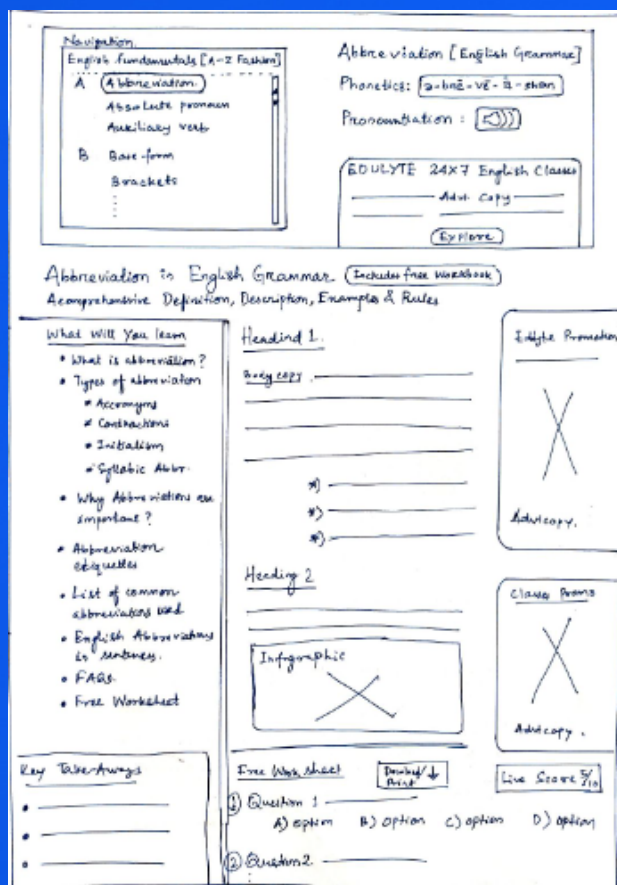 Navigation.
English Fundamentals [A-Z Fashion]
A Abbreviation
Absolute pronoun
Auxiliary verb
B Base-form
Brackets
Abbreviation [English Grammar]
Phonetics:
Pronountiation :
EDULYTE 24x7 English Classes
Advt. Copy
Explore
Abbreviation in English Grammar (Includes free Workbook)
A comprehensive Definition, Description, Examples & Rules
What Will You learn
• What is abbreviation?
• Types of abbreviation
* Accronyms
* Contractions
* Initialism
* Syllabic Abbr.
• Why Abbreviations are
important?
* Abbreviation
etiquettes
• List of common
abbreviations used
• English Abbreviations
in sentences.
• FAQs.
• Free Worksheet
Key Take-Aways
Headind 1.
Body copy
*)
*)
*)
Heading 2
Infographic
Edulyte Promotion
Advt copy.
Classes Promo
Advt copy.
Free Work sheet
Download/
Print
Live Score 5/10
1) Question 1
A) option B) option C) option D) option
2) Question 2